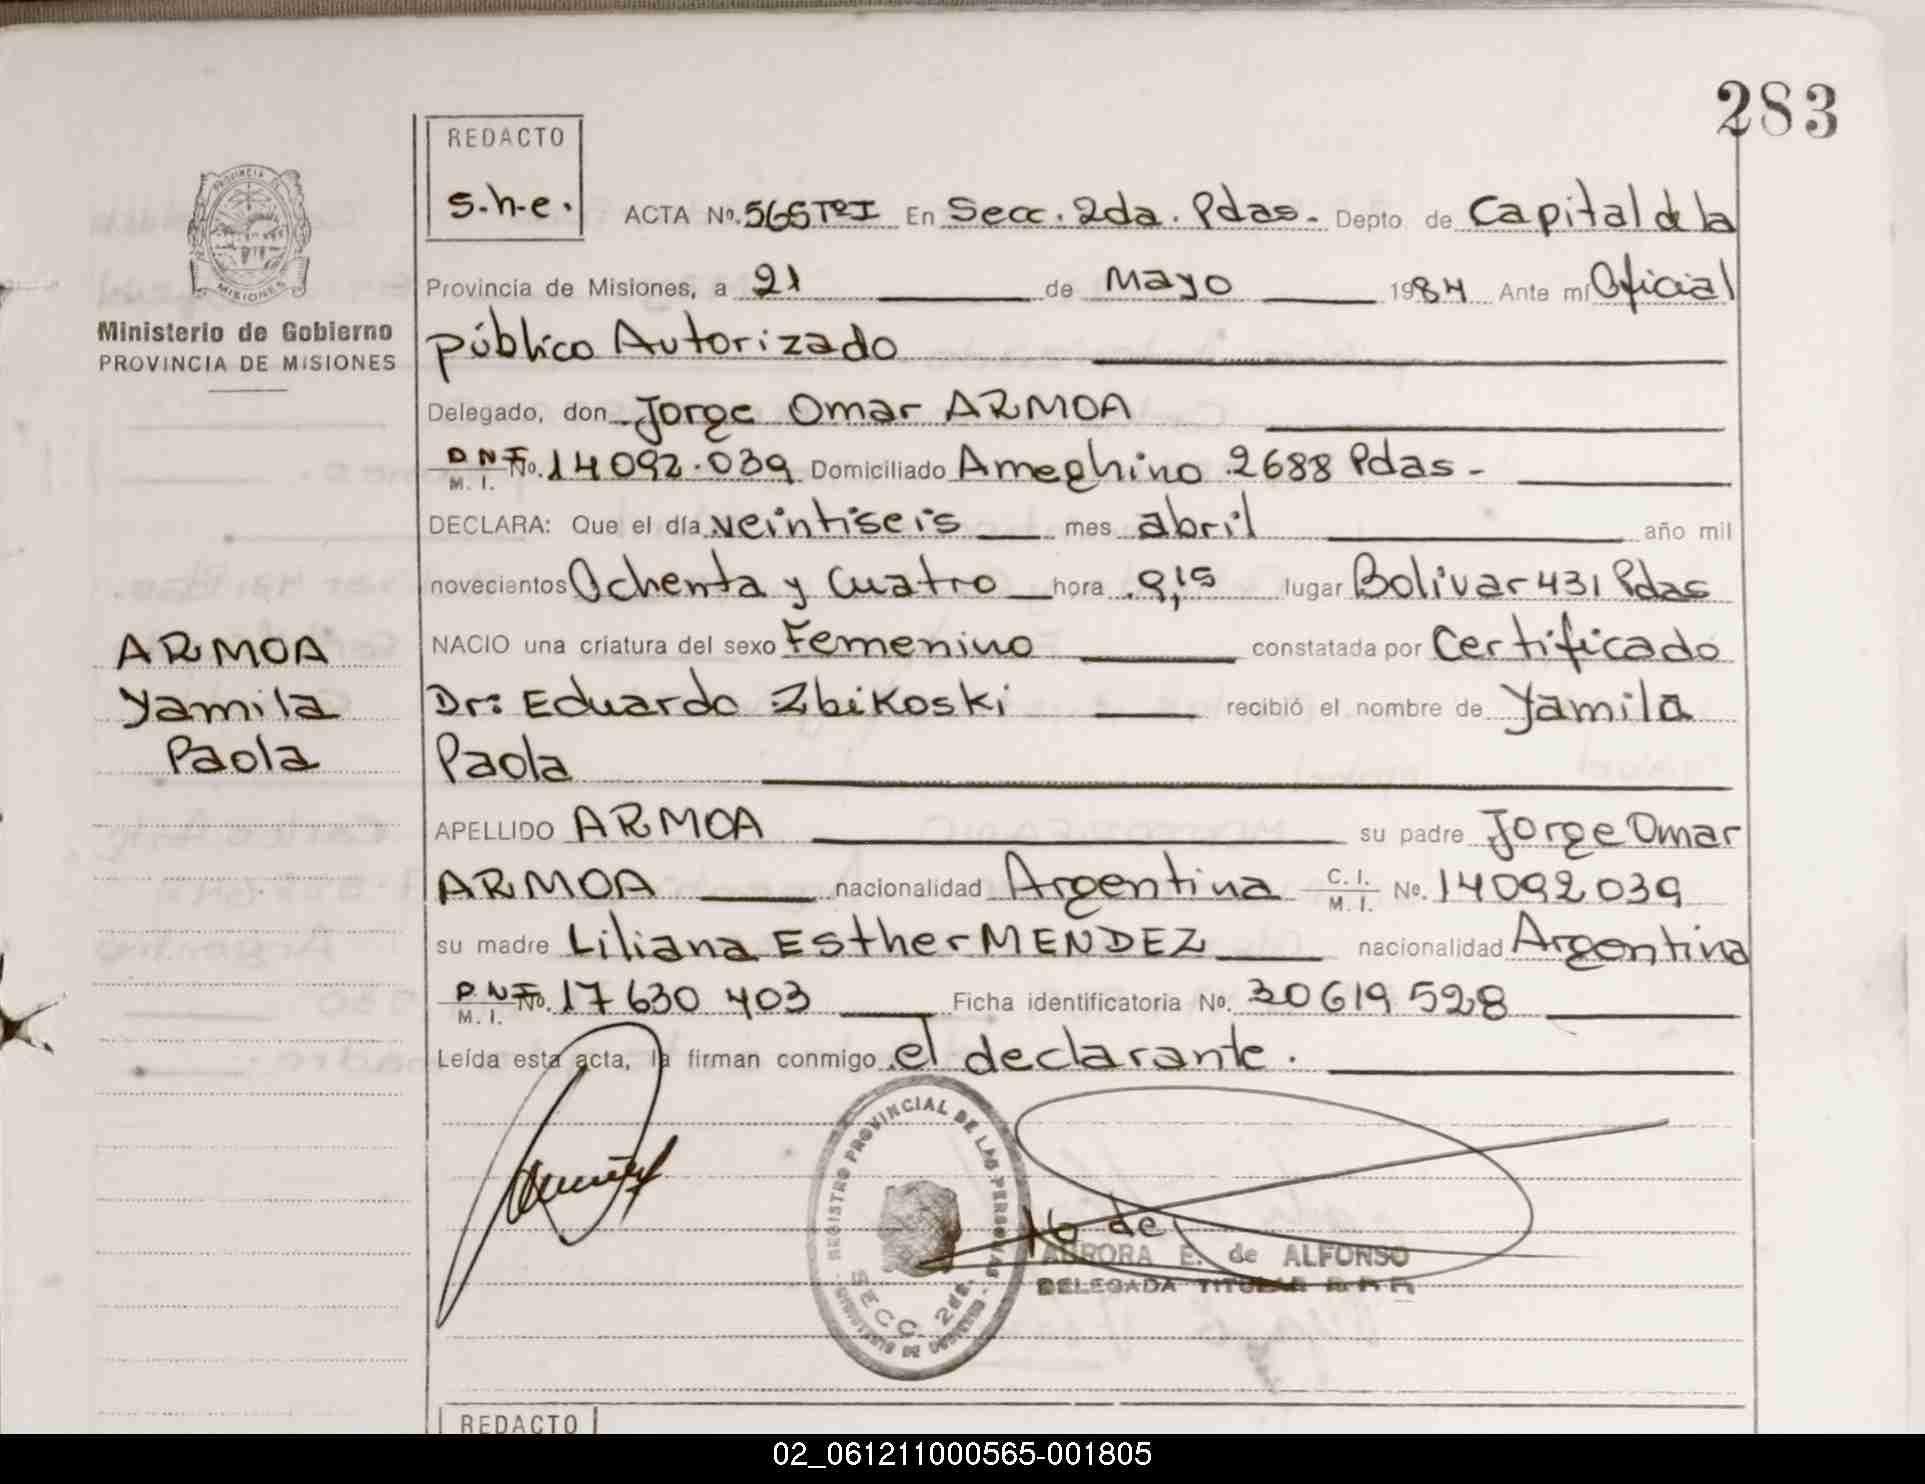 283
REDACTO
s.h.e.
ACTA No. 565 To I En Secc. 2da. Pdas- Depto de Capital de la
Provincia de Misiones, a 21 de Mayo 1984 Ante mí Oficial
público Autorizado
Delegado, don Jorge Omar ARMOA
DNI M. I. No. 14092.039 Domiciliado Ameghino 2688 Pdas-
DECLARA: Que el día veintiseis mes abril año mil
novecientos Ochenta y Cuatro hora 9,15 lugar Bolivar 431 Pdas
NACIO una criatura del sexo Femenino constatada por Certificado
Dr: Eduardo Zbikoski recibió el nombre de Yamila
Paola
APELLIDO ARMOA su padre Jorge Omar
ARMOA nacionalidad Argentina C. I. M. I. No. 14092039
su madre Liliana Esther MENDEZ nacionalidad Argentina
DNI M. I. No. 17630403 Ficha identificatoria No. 30619528
Leída esta acta, la firman conmigo el declarante.
PROVINCIA DE
MISIONES
Ministerio de Gobierno
PROVINCIA DE MISIONES
ARMOA
Yamila
Paola
REGISTRO PROVINCIAL DE LAS PERSONAS
SECC. 2da.
AURORA E. de ALFONSO
DELEGADA TITULAR
REDACTO
02_061211000565-001805